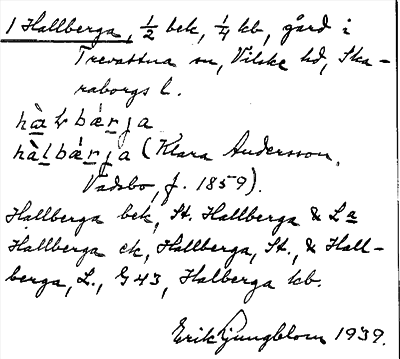 1 Hallberga, ½ bek, ¼ kb, gård i
Trevattna sn, Vilske hd, Ska-
raborgs l.
hàɫbærja
hàlbærja (Klara Andersson,
Vadsbo, f. 1859).
Hallberga bek, St. Hallberga & La
Hallberga ek, Hallberga, St., & Hall-
berga, L., G 43, Halberga kb.
Erik Ljungblom 1939.